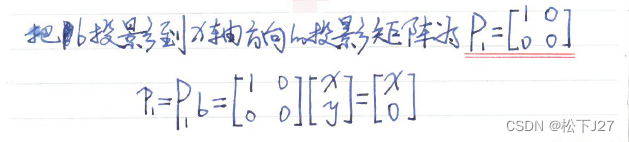 把b投影到x轴方向的投影矩阵为 P₁=[1 0; 0 0]
p₁=P₁b=[1 0; 0 0][x; y]=[x; 0]
CSDN @松下J27